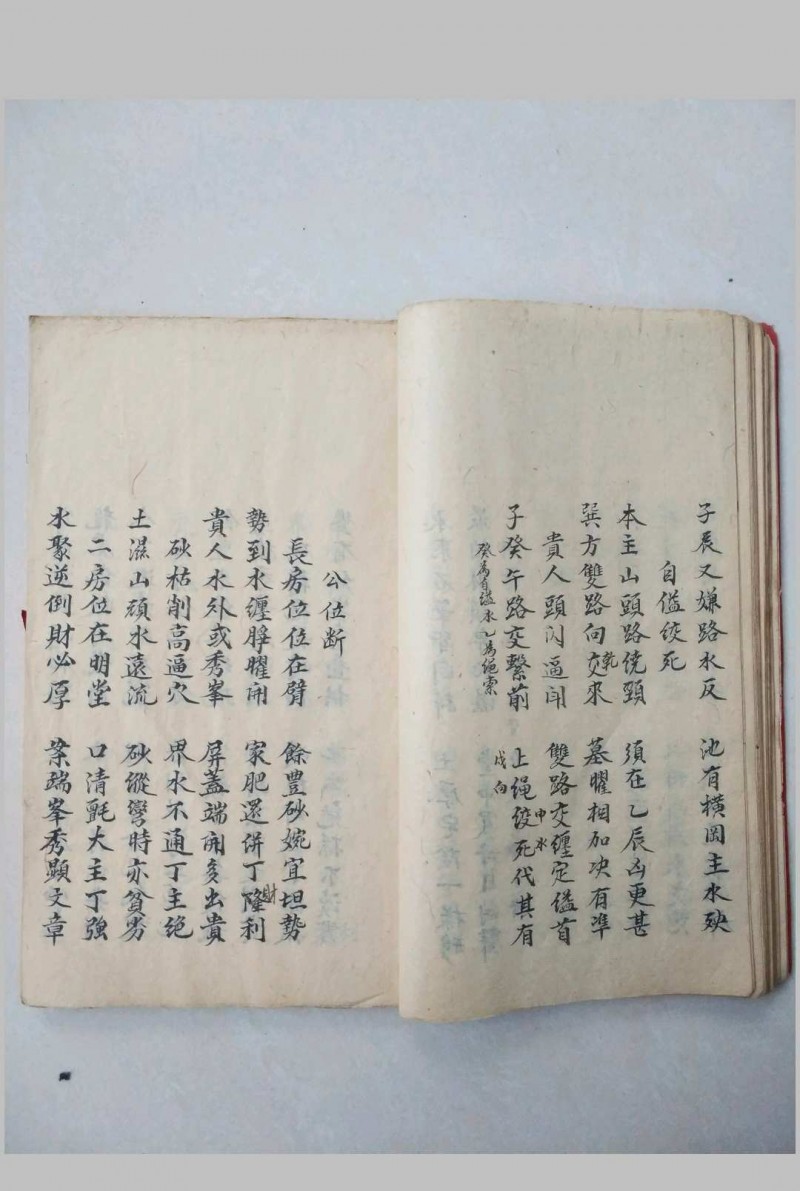 子辰又嫌路水反 池有橫岡主水殃
自縊絞死
本主山頭路繞頸 須在乙辰凶更甚
巽方雙路向乾交來 墓曜相加决有準
貴人頭閃逼闬 雙路交纏定縊首
子癸午路交繫前 上繩絞死代其有
癸為自縊水乙為繩索 戌向 申水
公位断
長房位位在臂 餘豊砂婉宜坦勢
勢到水纏脖曜開 家肥還併丁隆利 財
貴人水外或秀峯 屏盖端開多出貴
砂枯削高逼穴 界水不通丁主絶
土滋山頑水遠流 砂縱彎時亦貧夯
二房位在明堂 口清氈大主丁強
水聚逆倒財必厚 案端峯秀顯文章